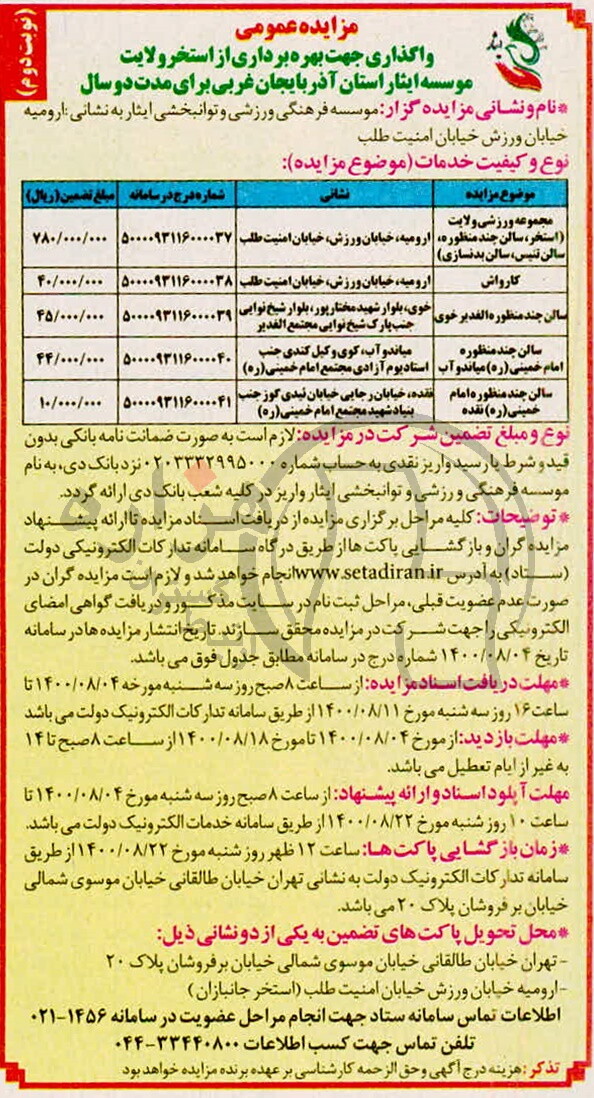 (نوبت دوم)
مزایده عمومی
واگذاری جهت بهره برداری از استخر ولایت
موسسه ایثار استان آذربایجان غربی برای مدت دو سال
*نام و نشانی مزایده گزار: موسسه فرهنگی ورزشی و توانبخشی ایثار به نشانی :ارومیه
خیابان ورزش خیابان امنیت طلب
نوع و کیفیت خدمات (موضوع مزایده):
موضوع مزایده نشانی شماره درج در سامانه مبلغ تضمین (ریال)
مجموعه ورزشی ولایت
(استخر، سالن چند منظوره، سالن تنیس، سالن بدنسازی) ارومیه، خیابان ورزش، خیابان امنیت طلب ۵۰۰۰۰۹۳۱۱۶۰۰۰۰۳۷ ۷۸۰/۰۰۰/۰۰۰
کارواش ارومیه، خیابان ورزش، خیابان امنیت طلب ۵۰۰۰۰۹۳۱۱۶۰۰۰۰۳۸ ۴۰/۰۰۰/۰۰۰
سالن چند منظوره الغدیر خوی خوی، بلوار شهید مختارپور، بلوار شیخ نوایی جنب پارک شیخ نوایی مجتمع الغدیر ۵۰۰۰۰۹۳۱۱۶۰۰۰۰۳۹ ۴۵/۰۰۰/۰۰۰
سالن چند منظوره امام خمینی (ره) میاندوآب میاندوآب، کوی وکیل کندی جنب استادیوم آزادی مجتمع امام خمینی (ره) ۵۰۰۰۰۹۳۱۱۶۰۰۰۰۴۰ ۴۴/۰۰۰/۰۰۰
سالن چند منظوره امام خمینی (ره) نقده نقده، خیابان رجایی خیابان ئیدی گوز جنب بنیاد شهید مجتمع امام خمینی (ره) ۵۰۰۰۰۹۳۱۱۶۰۰۰۰۴۱ ۱۰/۰۰۰/۰۰۰
نوع و مبلغ تضمین شرکت در مزایده: لازم است به صورت ضمانت نامه بانکی بدون
قید و شرط یا رسید واریز نقدی به حساب شماره ۰۲۰۳۳۳۲۹۹۵۰۰۰ نزد بانک دی، به نام
موسسه فرهنگی ورزشی و توانبخشی ایثار واریز در کلیه شعب بانک دی ارائه گردد.
*توضیحات: کلیه مراحل برگزاری مزایده از دریافت اسناد مزایده تا ارائه پیشنهاد
مزایده گران و بازگشایی پاکت ها از طریق درگاه سامانه تدارکات الکترونیکی دولت
(ستاد) به آدرس www.setadiran.ir انجام خواهد شد و لازم است مزایده گران در
صورت عدم عضویت قبلی، مراحل ثبت نام در سایت مذکور و دریافت گواهی امضای
الکترونیکی را جهت شرکت در مزایده محقق سازند. تاریخ انتشار مزایده ها در سامانه
تاریخ ۱۴۰۰/۰۸/۰۴ شماره درج در سامانه مطابق جدول فوق می باشد.
*مهلت دریافت اسناد مزایده: از ساعت ۸ صبح روز سه شنبه مورخه ۱۴۰۰/۰۸/۰۴ تا
ساعت ۱۶ روز سه شنبه مورخ ۱۴۰۰/۰۸/۱۱ از طریق سامانه تدارکات الکترونیک دولت می باشد
*مهلت بازدید: از مورخ ۱۴۰۰/۰۸/۰۴ تا مورخ ۱۴۰۰/۰۸/۱۸ از ساعت ۸ صبح تا ۱۴
به غیر از ایام تعطیل می باشد.
مهلت آپلود اسناد و ارائه پیشنهاد: از ساعت ۸ صبح روز سه شنبه مورخ ۱۴۰۰/۰۸/۰۴ تا
ساعت ۱۰ روز شنبه مورخ ۱۴۰۰/۰۸/۲۲ از طریق سامانه خدمات الکترونیک دولت می باشد.
*زمان بازگشایی پاکت ها: ساعت ۱۲ ظهر روز شنبه مورخ ۱۴۰۰/۰۸/۲۲ از طریق
سامانه تدارکات الکترونیک دولت به نشانی تهران خیابان طالقانی خیابان موسوی شمالی
خیابان برفروشان پلاک ۲۰ می باشد.
*محل تحویل پاکت های تضمین به یکی از دو نشانی ذیل:
- تهران خیابان طالقانی خیابان موسوی شمالی خیابان برفروشان پلاک ۲۰
-ارومیه خیابان ورزش خیابان امنیت طلب (استخر جانبازان)
اطلاعات تماس سامانه ستاد جهت انجام مراحل عضویت در سامانه ۱۴۵۶-۰۲۱
تلفن تماس جهت کسب اطلاعات ۳۳۴۴۰۸۰۰-۰۴۴
تذکر: هزینه درج آگهی وحق الزحمه کارشناسی بر عهده برنده مزایده خواهد بود